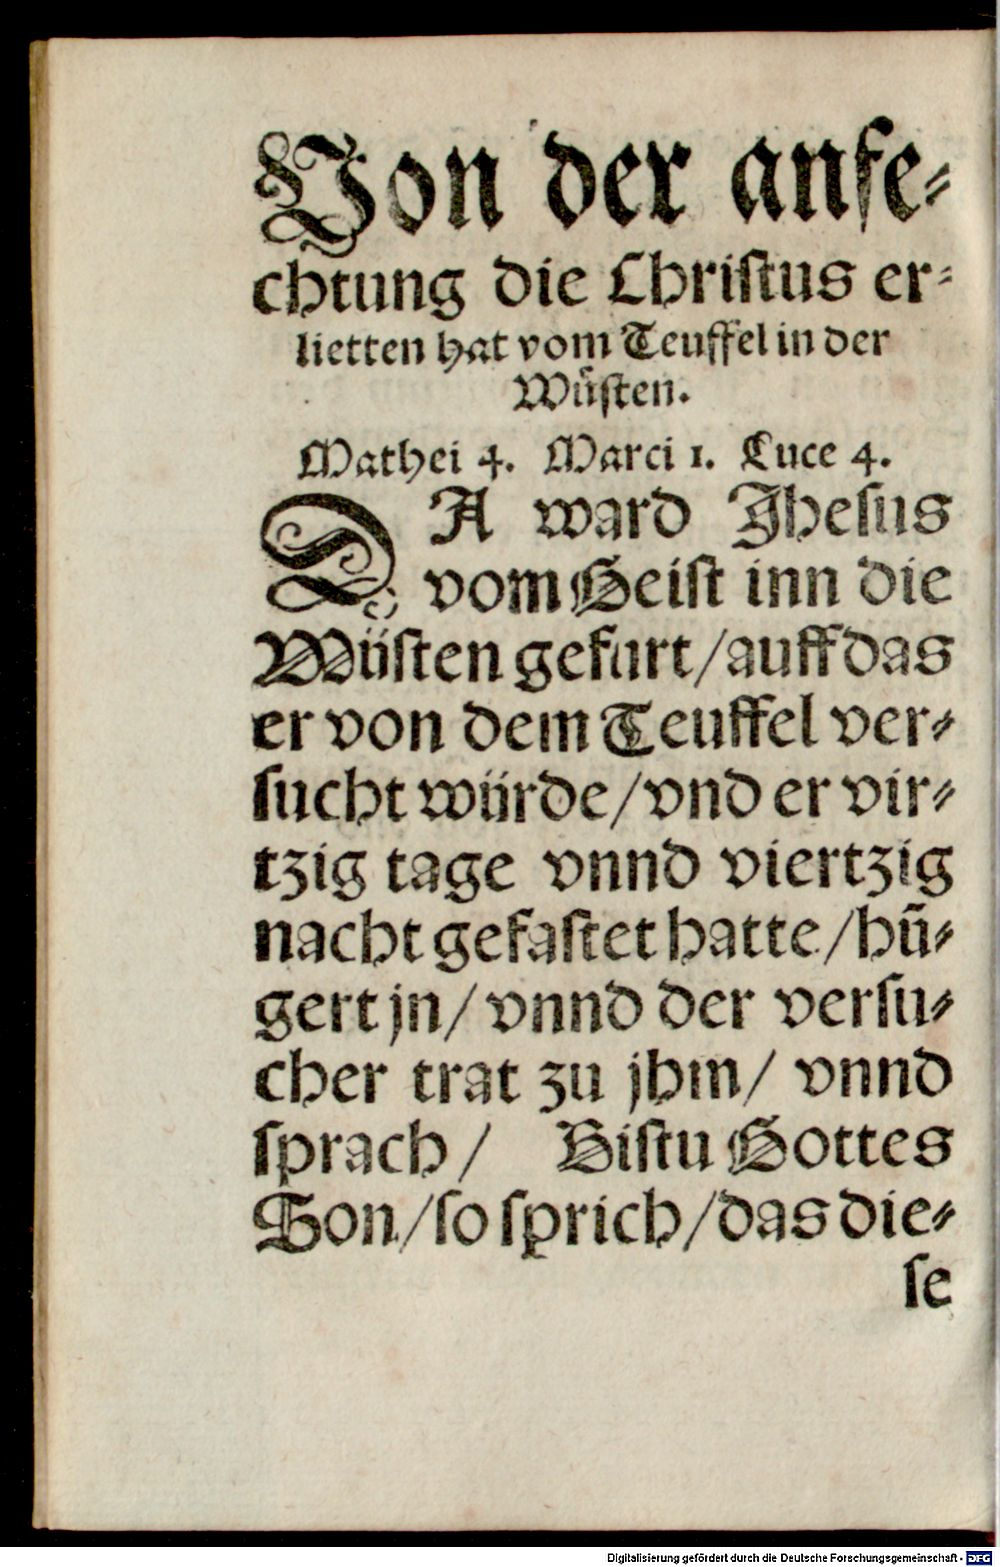 Von der anfe-
chtung die Christus er-
lietten hat vom Teuffel in der
Wüsten.
Mathei 4. Marci 1. Luce 4.
DA ward Jhesus
vom Geist inn die
Wüsten gefurt/auff das
er von dem Teuffel ver-
sucht würde/vnd er vir-
tzig tage vnnd viertzig
nacht gefastet hatte/hũ-
gert jn/ vnnd der versu-
cher trat zu jhm/ vnnd
sprach/ Bistu Gottes
Son/so sprich/das die-
se
Digitalisierung gefördert durch die Deutsche Forschungsgemeinschaft - DFG